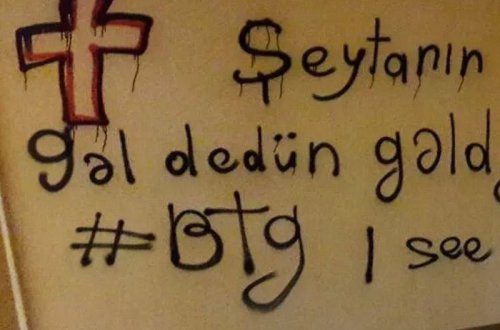 Şeytanın
gəl dedün gəld
#Btg I see